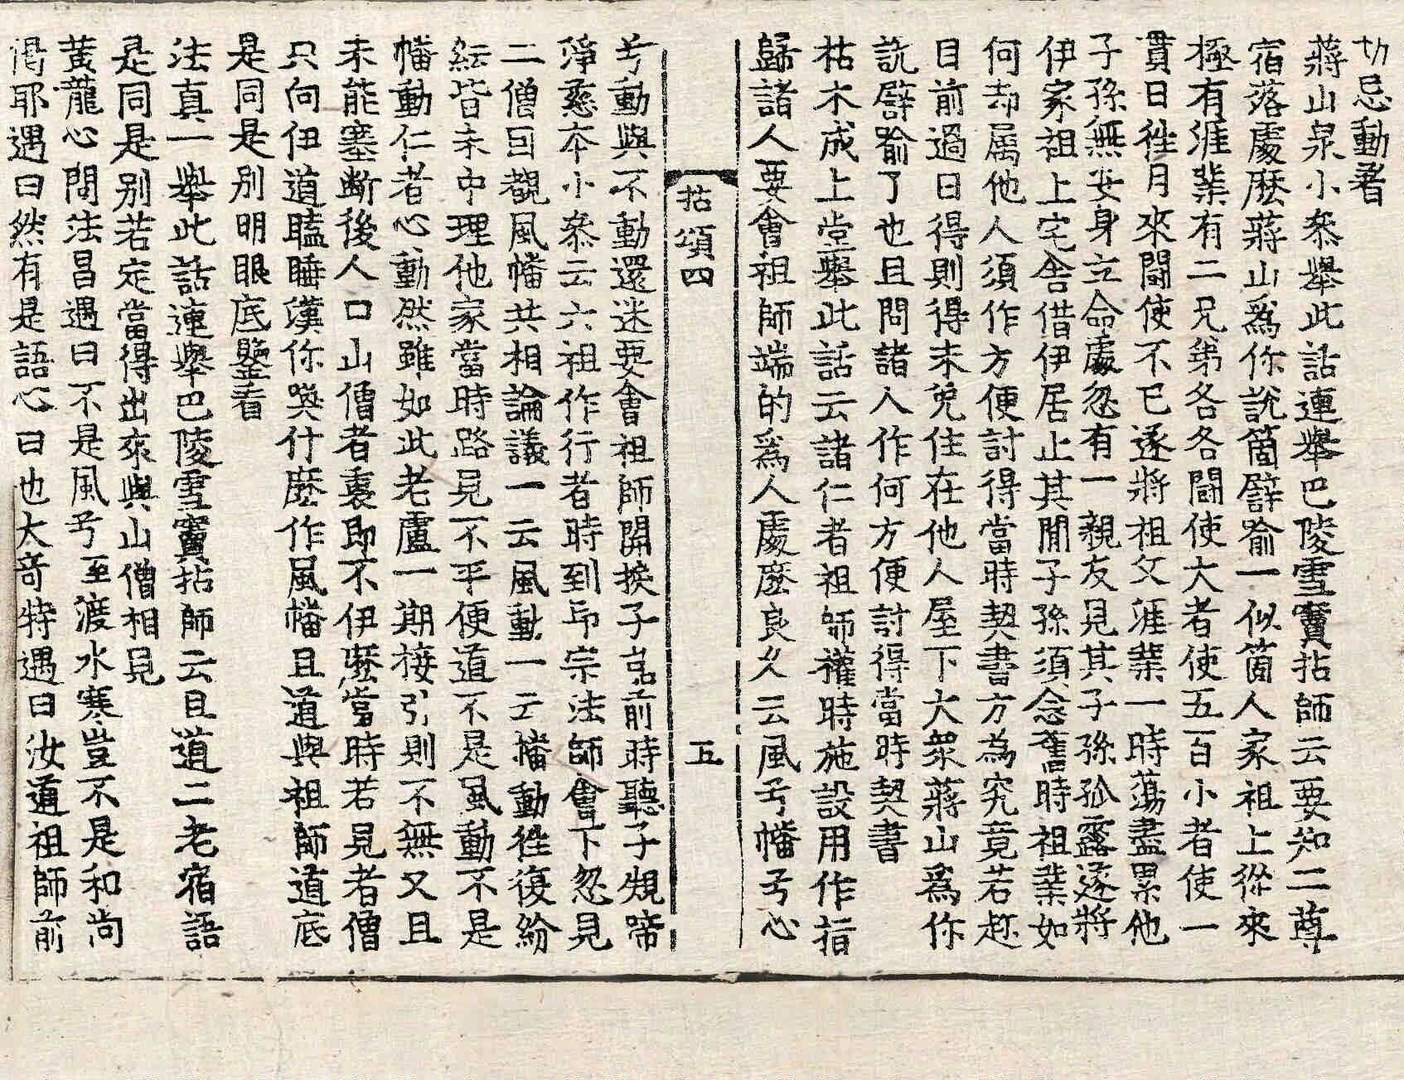 切忌動著
蔣山泉小叅舉此話連舉巴陵雪竇拈師云要知二尊
宿落處麽蔣山爲你說箇譬喻一似箇人家祖上從來
極有涯業有二兄弟各各鬪使大者使五百小者使一
貫日徃月來鬪使不已遂將祖父涯業一時蕩盡累他
子孫無安身立命處忽有一親友見其子孫孤露遂將
伊家祖上宅舍借伊居止其閒子孫須念舊時祖業如
何却属他人須作方便討得當時契書方為究竟若趂
目前過日得則得未免住在他人屋下大衆蔣山爲你
說譬喻了也且問諸人作何方便討得當時契書
枯木成上堂舉此話云諸仁者祖師權時施設用作指
歸諸人要會祖師端的爲人處麽良久云風兮幡兮心
拈頌四　五
兮動與不動還迷要會祖師開換子 前時聽子䂓啼
淨慈本小叅云六祖作行者時到印宗法師會下忽見
二僧因覩風幡共相論議一云風動一云幡動徃復紛
紜皆未中理他家當時路見不平便道不是風動不是
幡動仁者心動然雖如此老盧一期接引則不無又且
未能塞斷後人口山僧者裏即不伊麽當時若見者僧
只向伊道瞌睡漢你喚什麽作風幡且道與祖師道底
是同是別明眼底鑒看
法真一舉此話連舉巴陵雪竇拈師云且道二老宿語
是同是别若定當得出來與山僧相見
黃龍心問法昌遇曰不是風兮至渡水寒豈不是和尚
偈耶遇曰然有是語心曰也大奇特遇曰汝道祖師前